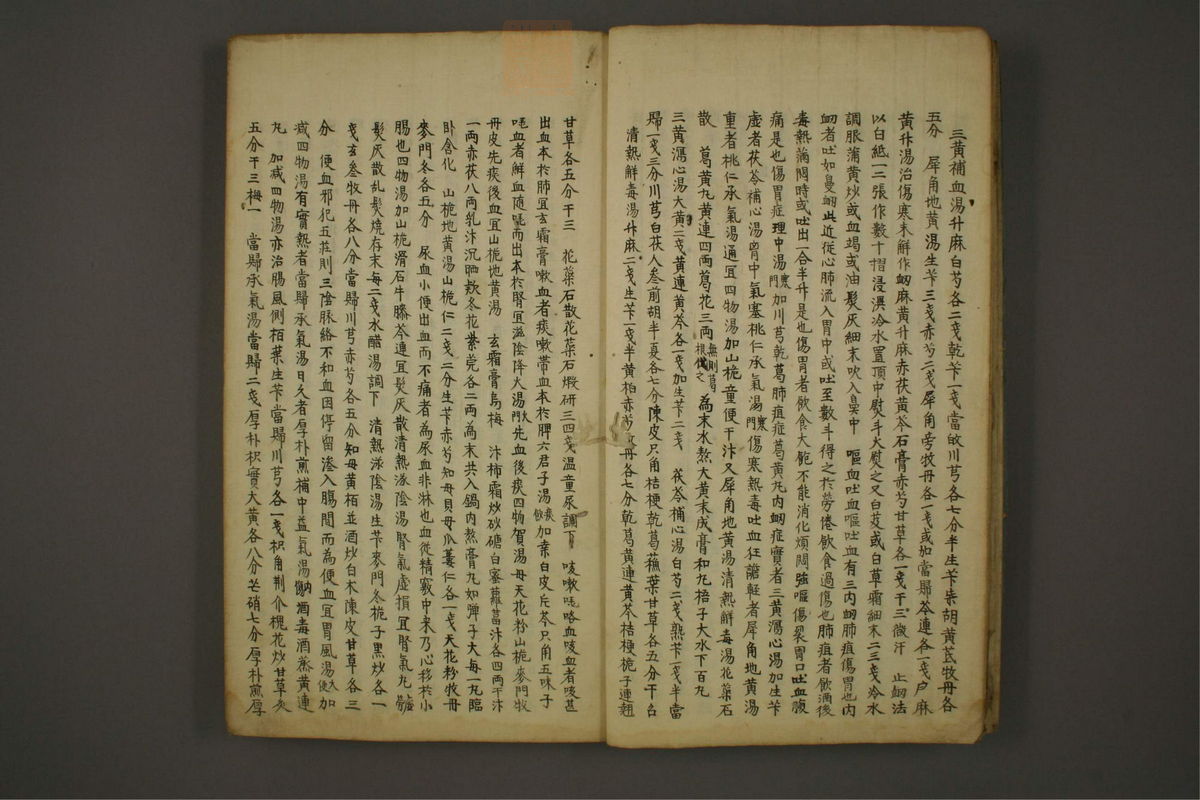 三黃補血湯升麻白芍各二戔乾芐一戔當歸川芎各七分半生芐柴胡黃芪牧丹各
五分　犀角地黃湯生芐三戔赤芍二戔犀角旁牧丹各一戔或加當歸芩連各一戔
黃升湯治傷寒未解作衂麻黃升麻赤茯黃芩石膏赤芍甘草各一戔干三微汗　止衂法
以白紙一二張作數十摺浸濕冷水置頂中熨斗火熨之又白芨或白草霜細末二三戔冷水
調服蒲黃炒或血竭或油髮灰細末吹入鼻中　嘔血吐血嘔吐血有三內衂肺疽傷胃也內
衂者吐如鼻衂此近從心肺流入胃中或吐至數斗得之於勞倦飮食過傷也肺疽者飮酒後
毒熱滿悶時或吐出一合半升是也傷胃者飮食大飽不能消化煩悶強嘔傷裂胃口吐血腹
痛是也傷胃症理中湯寒門加川芎乾葛肺疽症葛黃丸內衂症實者三黃瀉心湯加生芐
虛者茯苓補心湯胸中氣塞桃仁承氣湯寒門傷寒熱毒吐血狂譫輕者犀角地黃湯
重者桃仁承氣湯通宜四物湯加山梔童便干汁又犀角地黃湯淸熱解毒湯花蘂石
散　葛黃丸黃連四兩葛花三兩無則葛根代之為末水熬大黃末成膏和丸梧子大水下百丸
三黃瀉心湯大黃二戔黃連黃芩各一戔加生芐二戔　茯苓補心湯白芍二戔熟芐一戔半當
歸一戔三分川芎白茯人參前胡半夏各七分陳皮只角桔梗乾葛蘓葉甘草各五分干五召二
淸熱解毒湯升麻二戔生芐一戔半黃柏赤芍牧丹各七分乾葛黃連黃芩桔梗梔子連翹
甘草各五分干三　花蘂石散花蘂石煅研三四戔温童尿調下　咳嗽咯血咳血者咳甚
出血本於肺宜玄霜膏嗽血者痰嗽帶血本於脾六君子湯痰飮加桒白皮片芩只角五味子
咯血者鮮血隨咯而出本於腎宜滋陰降火湯火門先血後痰四物貿湯母天花粉山梔麥門牧
丹皮先痰後血宜山梔地黃湯　玄霜膏烏梅　汁柿霜炒砂糖白蜜蘿葍汁各四兩干汁
一兩赤茯八兩乳汁沉晒款冬花紫菀各二兩為末共入鍋內熬膏丸如彈子大每一丸臨
卧含化　山梔地黃湯山梔仁二戔二分生芐赤芍知母貝母瓜蔞仁各一戔天花粉牧丹
麥門冬各五分　尿血小便出血而不痛者為尿血非淋也血從精竅中来乃心移於小
腸也四物湯加山梔滑石牛膝芩連宜髮灰散淸熱滋陰湯腎氣虛損宜腎氣丸
髮灰散乱髮燒存末每二戔水醋湯調下　淸熱滋陰湯生芐麥門冬梔子黑炒各一
戔玄叅牧丹各八分當歸川芎赤芍各五分知母黃栢並酒炒白朮陳皮甘草各三
分　便血邪犯五莊則三陰脉絡不和血因停留滲入膓間而為便血宜胃風湯大便加
减四物湯有實熱者當歸承氣湯日久者厚朴煎補中益氣湯酒毒酒蒸黃連
丸　加减四物湯亦治腸風側栢葉生芐當歸川芎各一戔枳角荆介槐花炒甘草灸
五分干三梅一　當歸承氣湯當歸二戔厚朴枳實大黃各八分芒硝七分厚朴煎厚